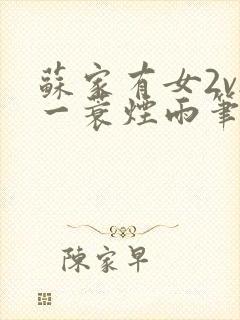 蘇家有女2v
一蓑煙雨筆
陳家早